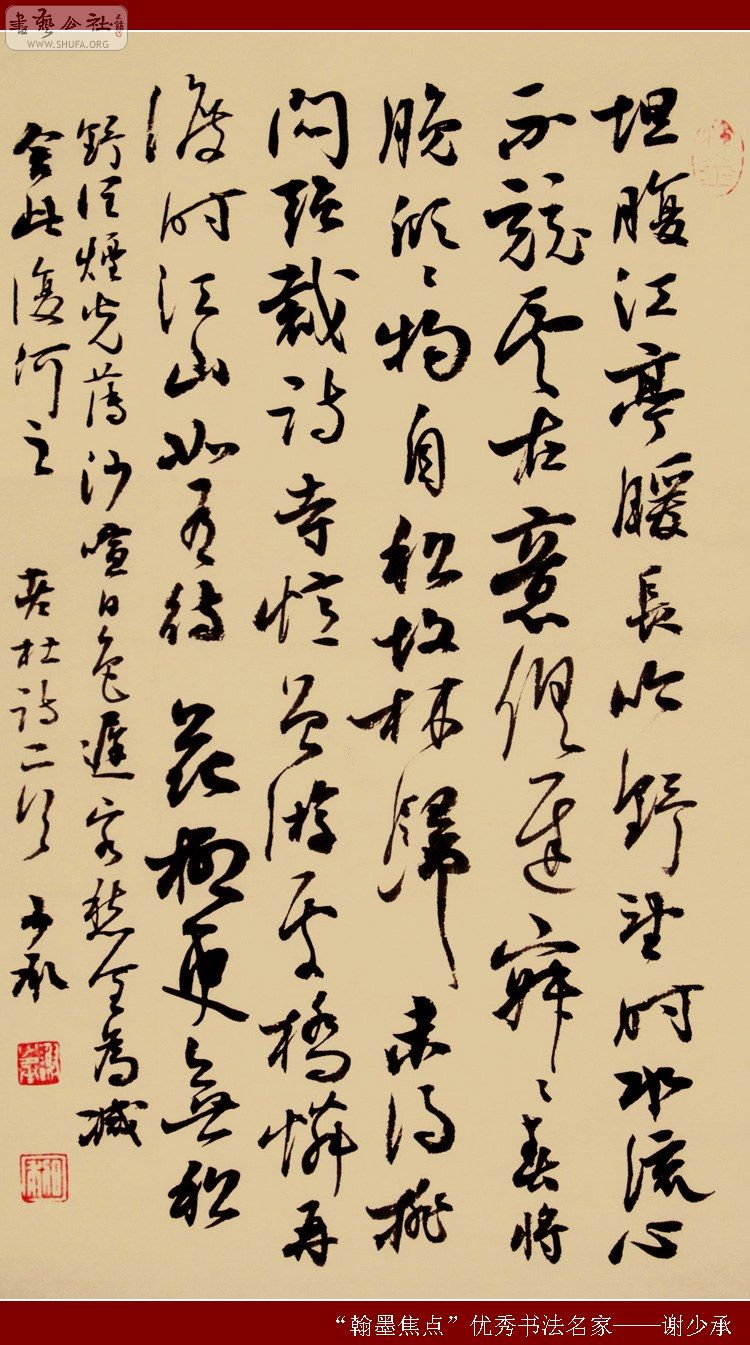 書藝公社
WWW.SHUFA.ORG
坦腹江亭暖長吟野望時水流心
不競雲在意俱遲寂〻春將
晚欣〻物自私故林歸未得排
悶強裁詩寺憶曾游處橋憐再
渡時江山如有待花柳更無私
野潤煙光薄沙暄日色遲客愁全為減
舍此復何之 書杜詩二首 少承
“翰墨焦点”优秀书法名家——谢少承